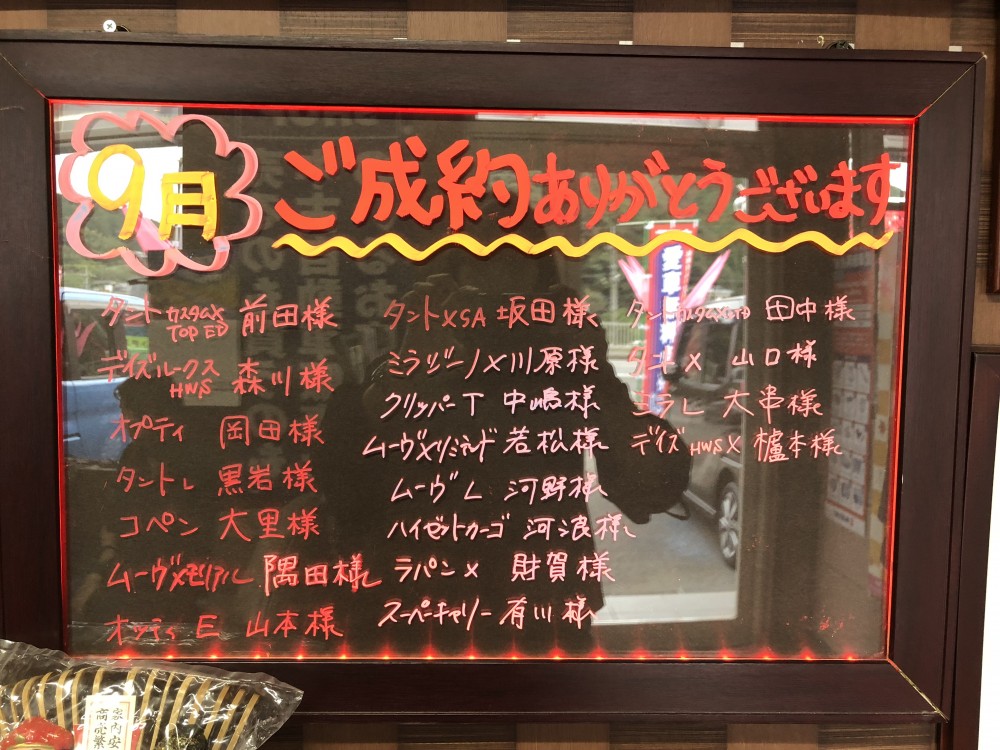 9月
ご成約ありがとうございます
タント カスタムX TOP ED 前田様
デイズルークス HWS 森川様
オプティ 岡田様
タントL 黒岩様
コペン 大里様
ムーヴXメモリアル 隅田様
オッティE 山本様
タントXSA 坂田様
ミラジーノX 川原様
クリッパーT 中嶋様
ムーヴXリミテッド 若松様
ムーヴL 河野様
ハイゼットカーゴ 河浪様
ラパンX 財賀様
スーパーキャリー 有川様
タント 田中様
タントX 山口様
ミラL 大串様
デイズ HWSX 櫨本様
家内安
商売繁